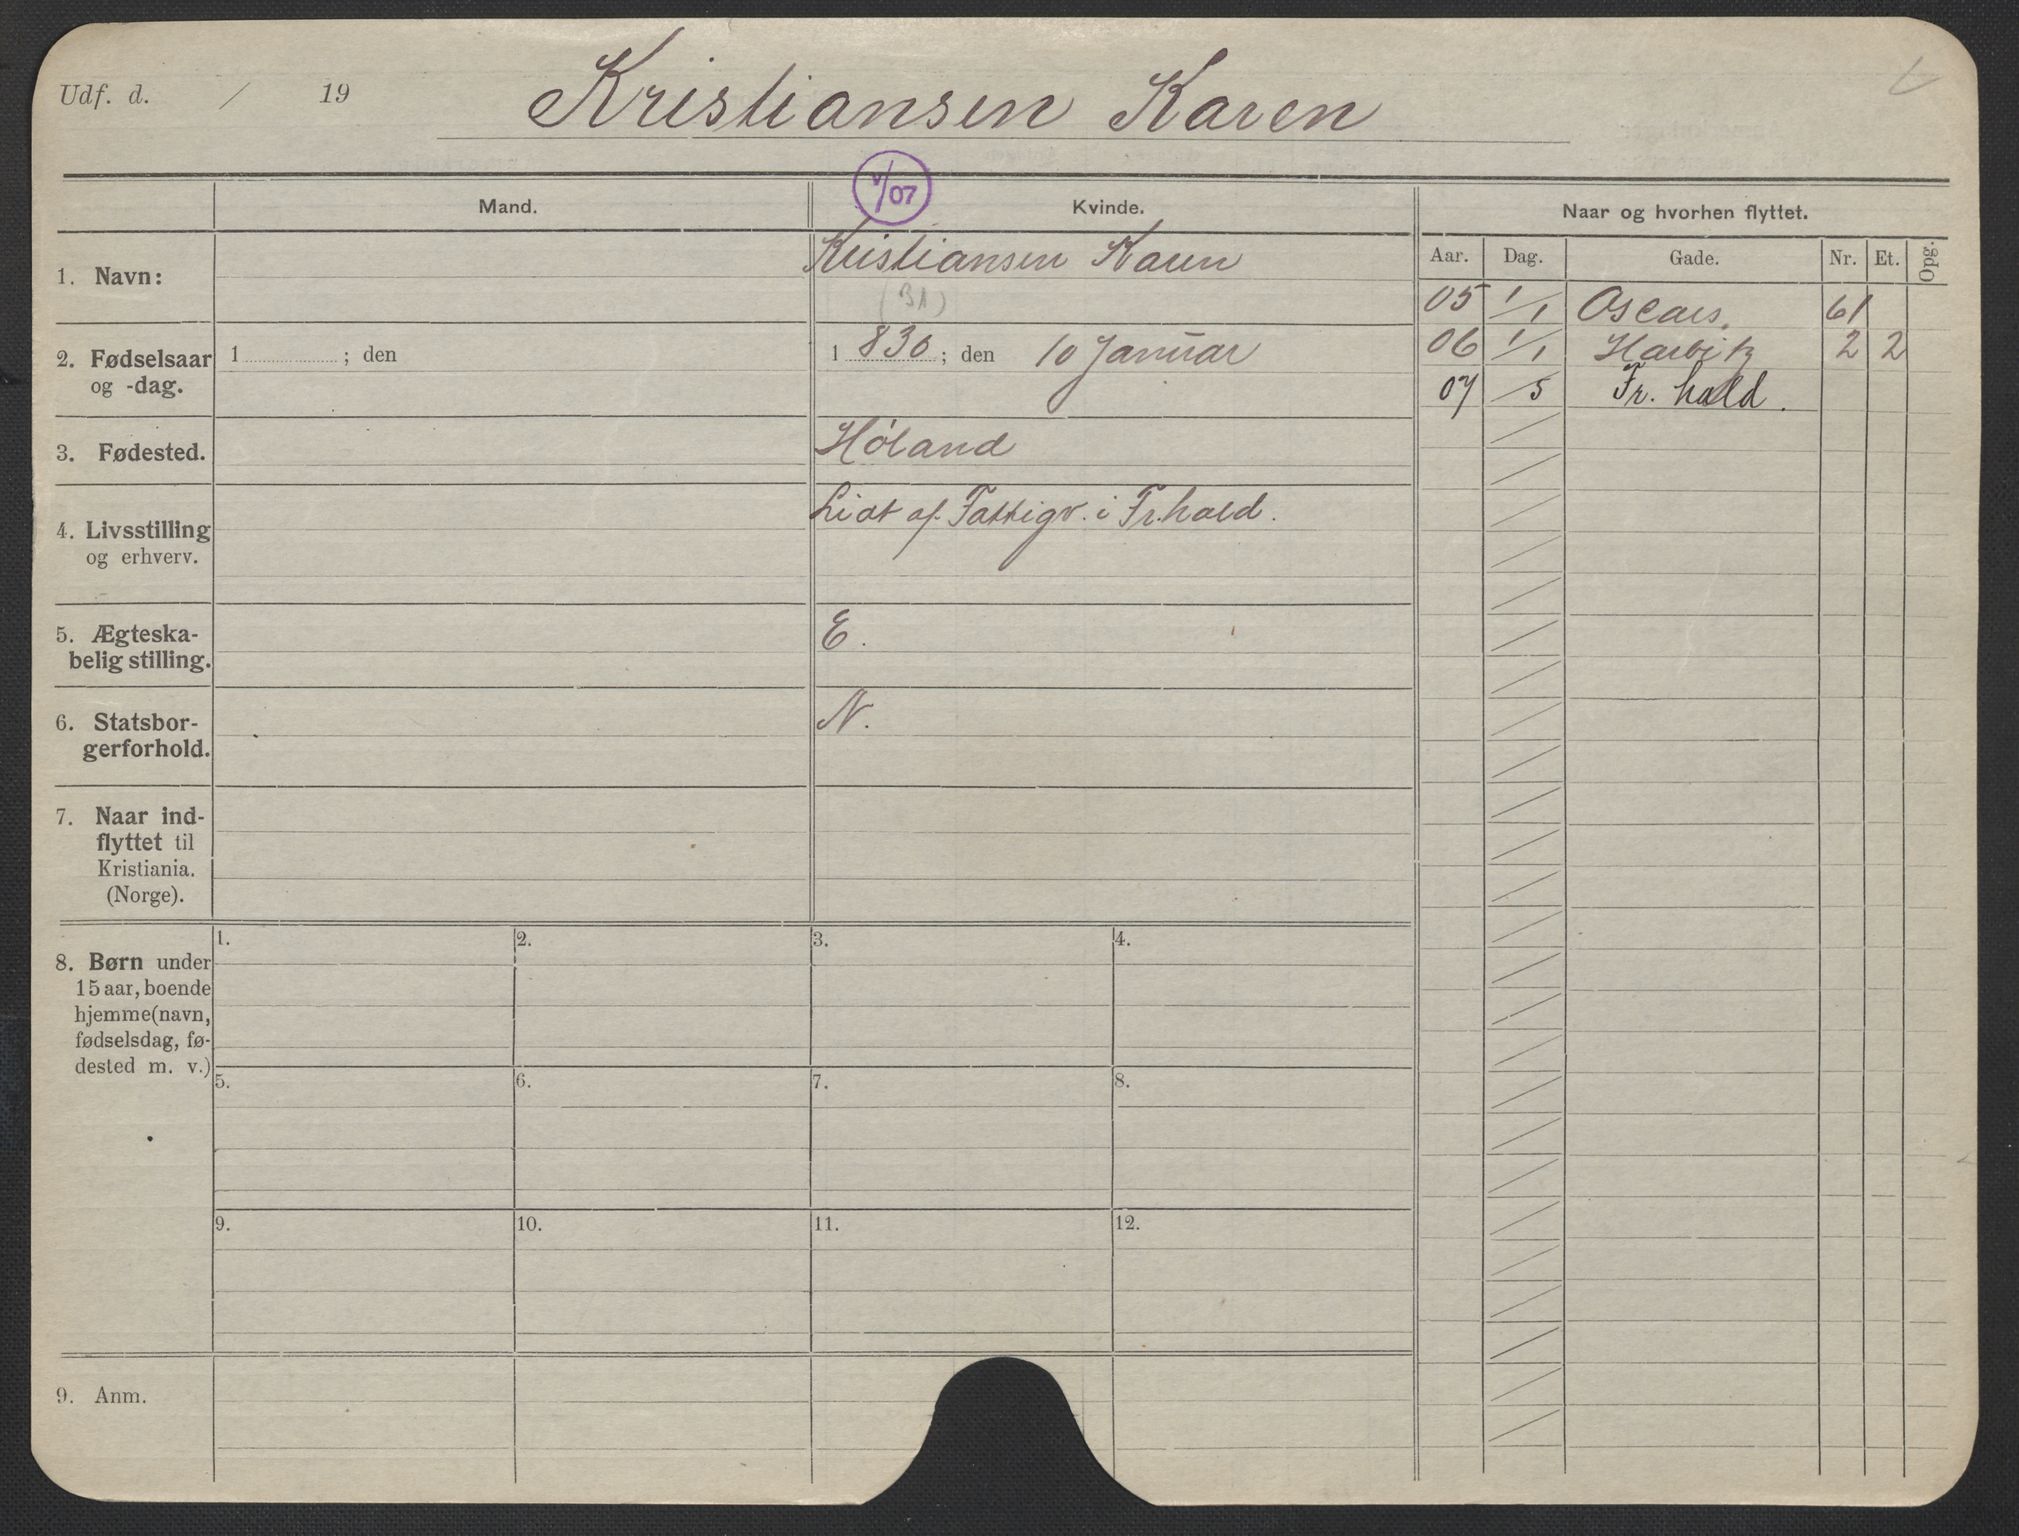 Udf. d. / 19
Kristiansen Karen
V/07
Mand.
Kvinde.
Naar og hvorhen flyttet.
Aar. Dag. Gade. Nr. Et. Opg.
05 1/1 Oscars. 61
06 1/1 Harbitz 2 2
07 /5 Fr. hald.
1. Navn:
Kristiansen Karen
2. Fødselsaar
og -dag.
1 ; den
1 830 ; den 10 Januar
3. Fødested.
Høland
4. Livsstilling
og erhverv.
Lidt af Fattigv. i Fr.hald.
5. Ægteska-
belig stilling.
E.
6. Statsbor-
gerforhold.
N.
7. Naar ind-
flyttet til
Kristiania.
(Norge).
8. Børn under
15 aar, boende
hjemme (navn,
fødselsdag, fø-
dested m. v.)
1. 2. 3. 4.
5. 6. 7. 8.
9. 10. 11. 12.
9. Anm.